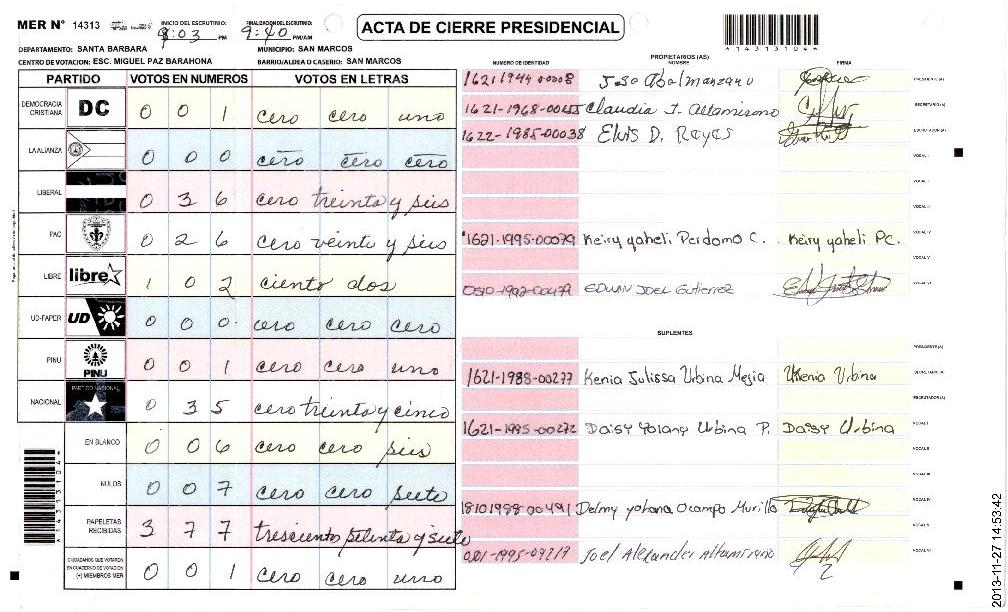 MER N° 14313 INICIO DEL ESCRUTINIO: 8:03 PM FINALIZACIÓN DEL ESCRUTINIO: 9:40 PM/AM
ACTA DE CIERRE PRESIDENCIAL
A14313104
DEPARTAMENTO: SANTA BARBARA MUNICIPIO: SAN MARCOS
CENTRO DE VOTACION: ESC. MIGUEL PAZ BARAHONA BARRIO/ALDEA O CASERIO: SAN MARCOS
PARTIDO VOTOS EN NUMEROS VOTOS EN LETRAS
DEMOCRACIA CRISTIANA DC 0 0 1 cero cero uno
LA ALIANZA 0 0 0 cero cero cero
LIBERAL 0 3 6 cero treinta y seis
PAC 0 2 6 cero veinte y seis
LIBRE libre 1 0 2 ciento dos
UD-FAPER UD 0 0 0 cero cero cero
PINU PINU 0 0 1 cero cero uno
NACIONAL PARTIDO NACIONAL 0 3 5 cero treinta y cinco
EN BLANCO 0 0 6 cero cero seis
NULOS 0 0 7 cero cero siete
PAPELETAS RECIBIDAS 3 7 7 trescientos setenta y siete
CIUDADANOS QUE VOTARON EN CUADERNO DE VOTACION (+) MIEMBROS MER 0 0 1 cero cero uno
PROPIETARIOS (AS)
NUMERO DE IDENTIDAD NOMBRE FIRMA
1621 1944 00008 Jose PRESIDENTE (A)
1621-1968-00255 Claudia J. Altamirano SECRETARIO (A)
1622-1985-00038 Elvis D. Reyes ESCRUTADOR (A)
VOCAL I
VOCAL II
VOCAL III
1621-1995-00079 Keiry yaheli Perdomo C. Keiry yaheli PC. VOCAL IV
VOCAL V
EDWIN JOEL Gutierrez VOCAL VI
SUPLENTES
PRESIDENTE (A)
1621-1988-00277 Kenia Julissa Urbina Mejia Kenia Urbina SECRETARIO (A)
ESCRUTADOR (A)
1621-1995-00272 Daisy Yolany Urbina P. Daisy Urbina VOCAL I
VOCAL II
VOCAL III
18101988-00491 Delmy yohana Ocampo Murillo VOCAL IV
VOCAL V
Joel Alexander Altamirano VOCAL VI
A14313104
2013-11-27 14:53:42